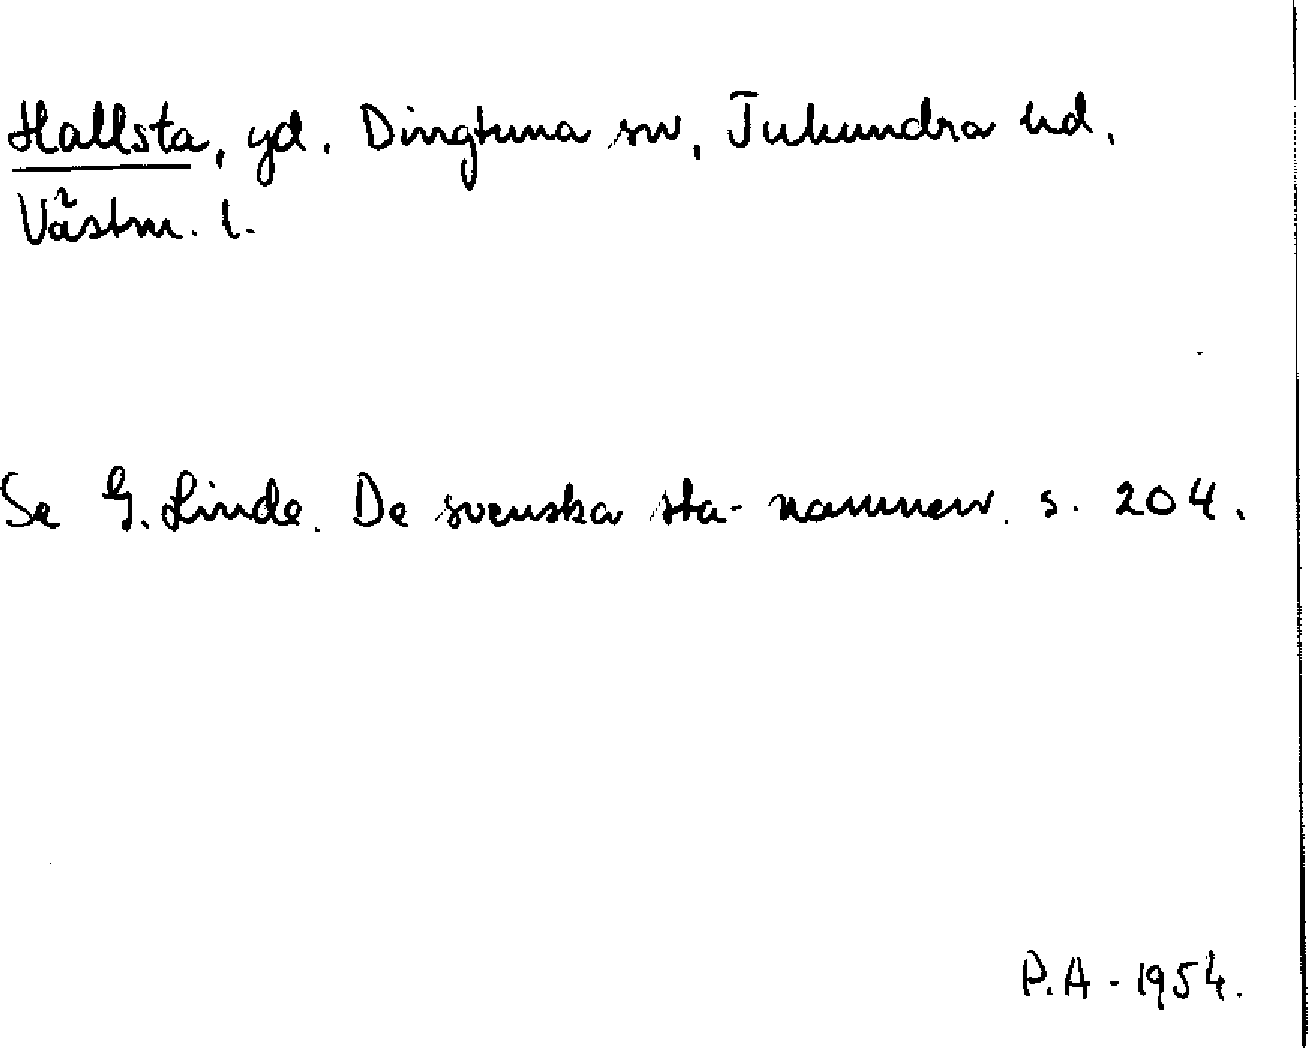 Hallsta, gd. Dingtuna sn, Tuhundra hd,
Västm. l.
Se G. Linde. De svenska sta-namnen. s. 204.
P.A. 1954.